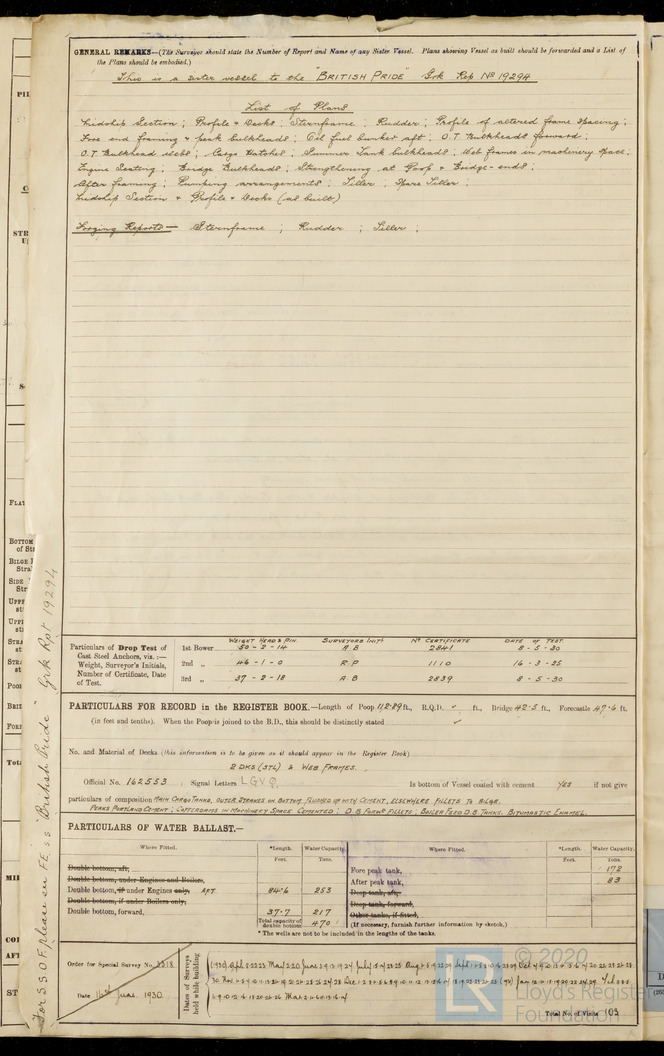 GENERAL REMARKS—(The Surveyor should state the Number of Report and Name of any Sister Vessel. Plans showing Vessel as built should be forwarded and a List of
the Plans should be embodied.)
This is a sister vessel to the "BRITISH PRIDE" Grk Rep No 19294
List of Plans
Midship Section ; Profile & Decks ; Sternframe ; Rudder ; Profile of altered frame spacing ;
Fore end framing & peak bulkheads ; Oil fuel bunker aft ; O.T. Bulkheads forward ;
O.T. Bulkhead webs ; Cargo Hatches ; Summer Tank bulkheads ; Web frames in machinery space ;
Engine Seating ; Bridge Bulkheads ; Strengthening at Poop & Bridge-ends ;
After framing ; Pumping arrangements ; Tiller ; Spare Tiller ;
Midship Section & Profile & Decks (as built)
Forging Reports — Sternframe ; Rudder ; Tiller ;
Particulars of Drop Test of
Cast Steel Anchors, viz. :—
Weight, Surveyor's Initials,
Number of Certificate, Date
of Test.
WEIGHT HEAD & PIN SURVEYORS INITS No CERTIFICATE DATE OF TEST
1st Bower 50 - 2 - 14 A.B 2841 8 - 5 - 30
2nd „ 46 - 1 - 0 R.P 1110 16 - 3 - 25
3rd „ 37 - 2 - 18 A B 2839 8 - 5 - 30
PARTICULARS FOR RECORD in the REGISTER BOOK.—Length of Poop 112.89 ft., R.Q.D. ft., Bridge 42.5 ft., Forecastle 47.6 ft.
(in feet and tenths). When the Poop is joined to the B.D., this should be distinctly stated
No. and Material of Decks (this information is to be given as it should appear in the Register Book)
2 DKS (STL) & WEB FRAMES.
Official No. 162553 Signal Letters LGVQ. Is bottom of Vessel coated with cement YES if not give
particulars of composition MAIN CARGO TANKS, OUTER STRAKES ON BOTTOM FLUSHED UP WITH CEMENT, ELSEWHERE FILLETS TO BILGE.
PEAKS PORTLAND CEMENT ; COFFERDAMS IN MACHINERY SPACE CEMENTED ; D.B. FORWD FILLETS ; BOILER FEED D.B. TANKS. BITUMASTIC ENAMEL.
PARTICULARS OF WATER BALLAST.—
Where Fitted. *Length. Water Capacity. Where Fitted. *Length. Water Capacity.
Feet. Tons. Feet. Tons.
Double bottom, aft, Fore peak tank, 172
Double bottom, under Engines and Boilers, After peak tank, 83
Double bottom, if under Engines only, AFT. 84.6 253 Deep tank, aft,
Double bottom, if under Boilers only, Deep tank, forward,
Double bottom, forward, 37.7 217 Other tanks, if fitted,
Total capacity of double bottom 470 (If necessary, furnish further information by sketch.)
* The wells are not to be included in the lengths of the tanks.
Order for Special Survey No. 3318
Date 16th June 1930.
Dates of Surveys
held while building
Total No. of Visits 103
For S.S.O.F. please see F.E. ss "British Pride" Grk Rpt 19294
© 2020
Lloyd's Register
Foundation
LR